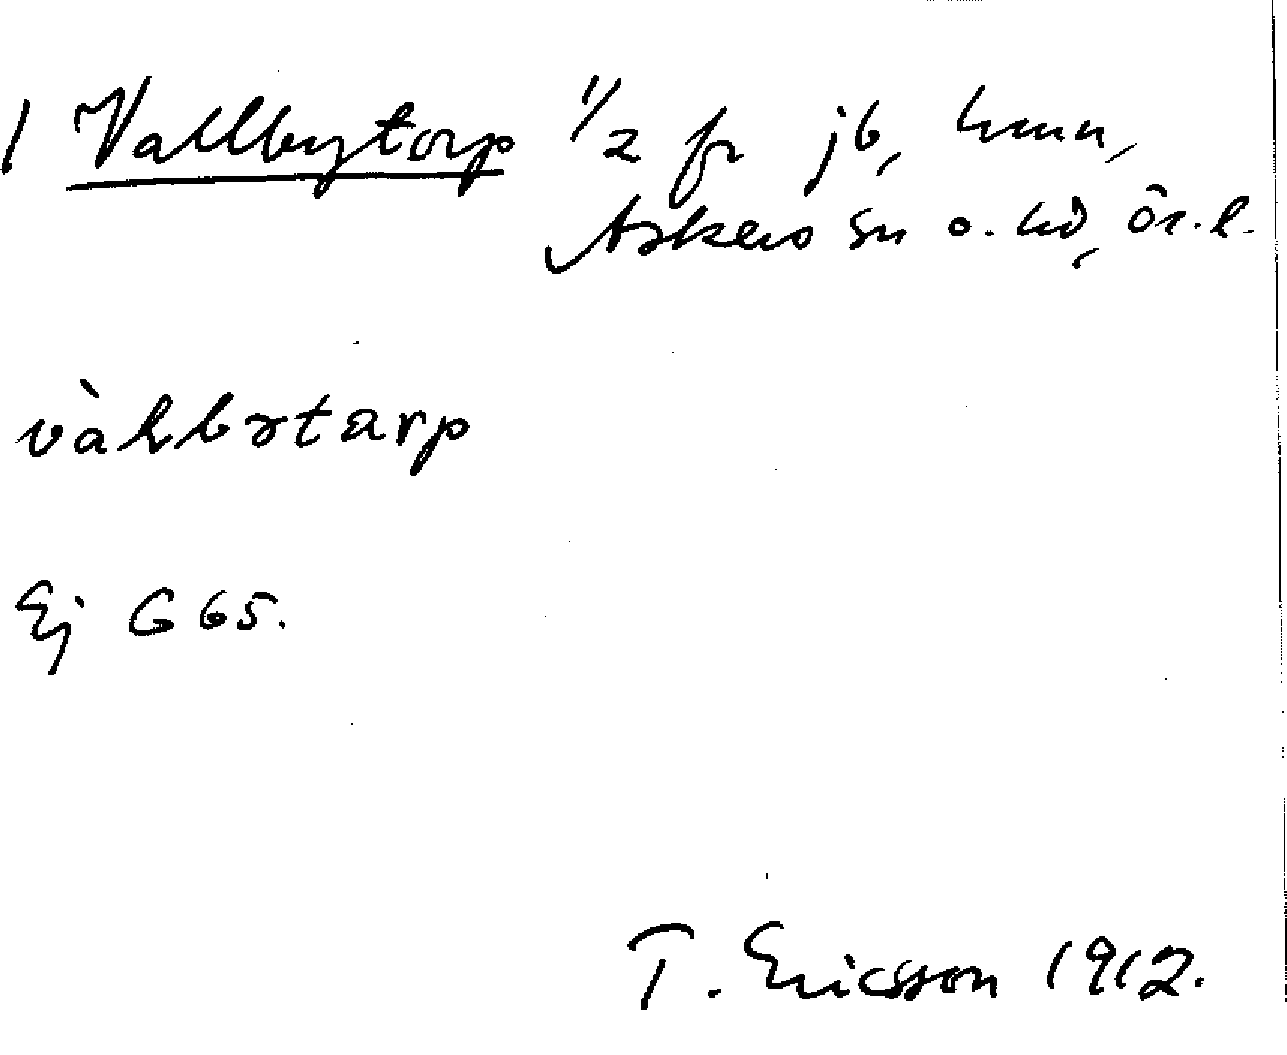 1 Vallbytorp 1/2 fr jb, hmn,
Askers sn o. hd, Ör. l.
vàllbɤtarp
Ej G 65.
T. Ericsson 1912.